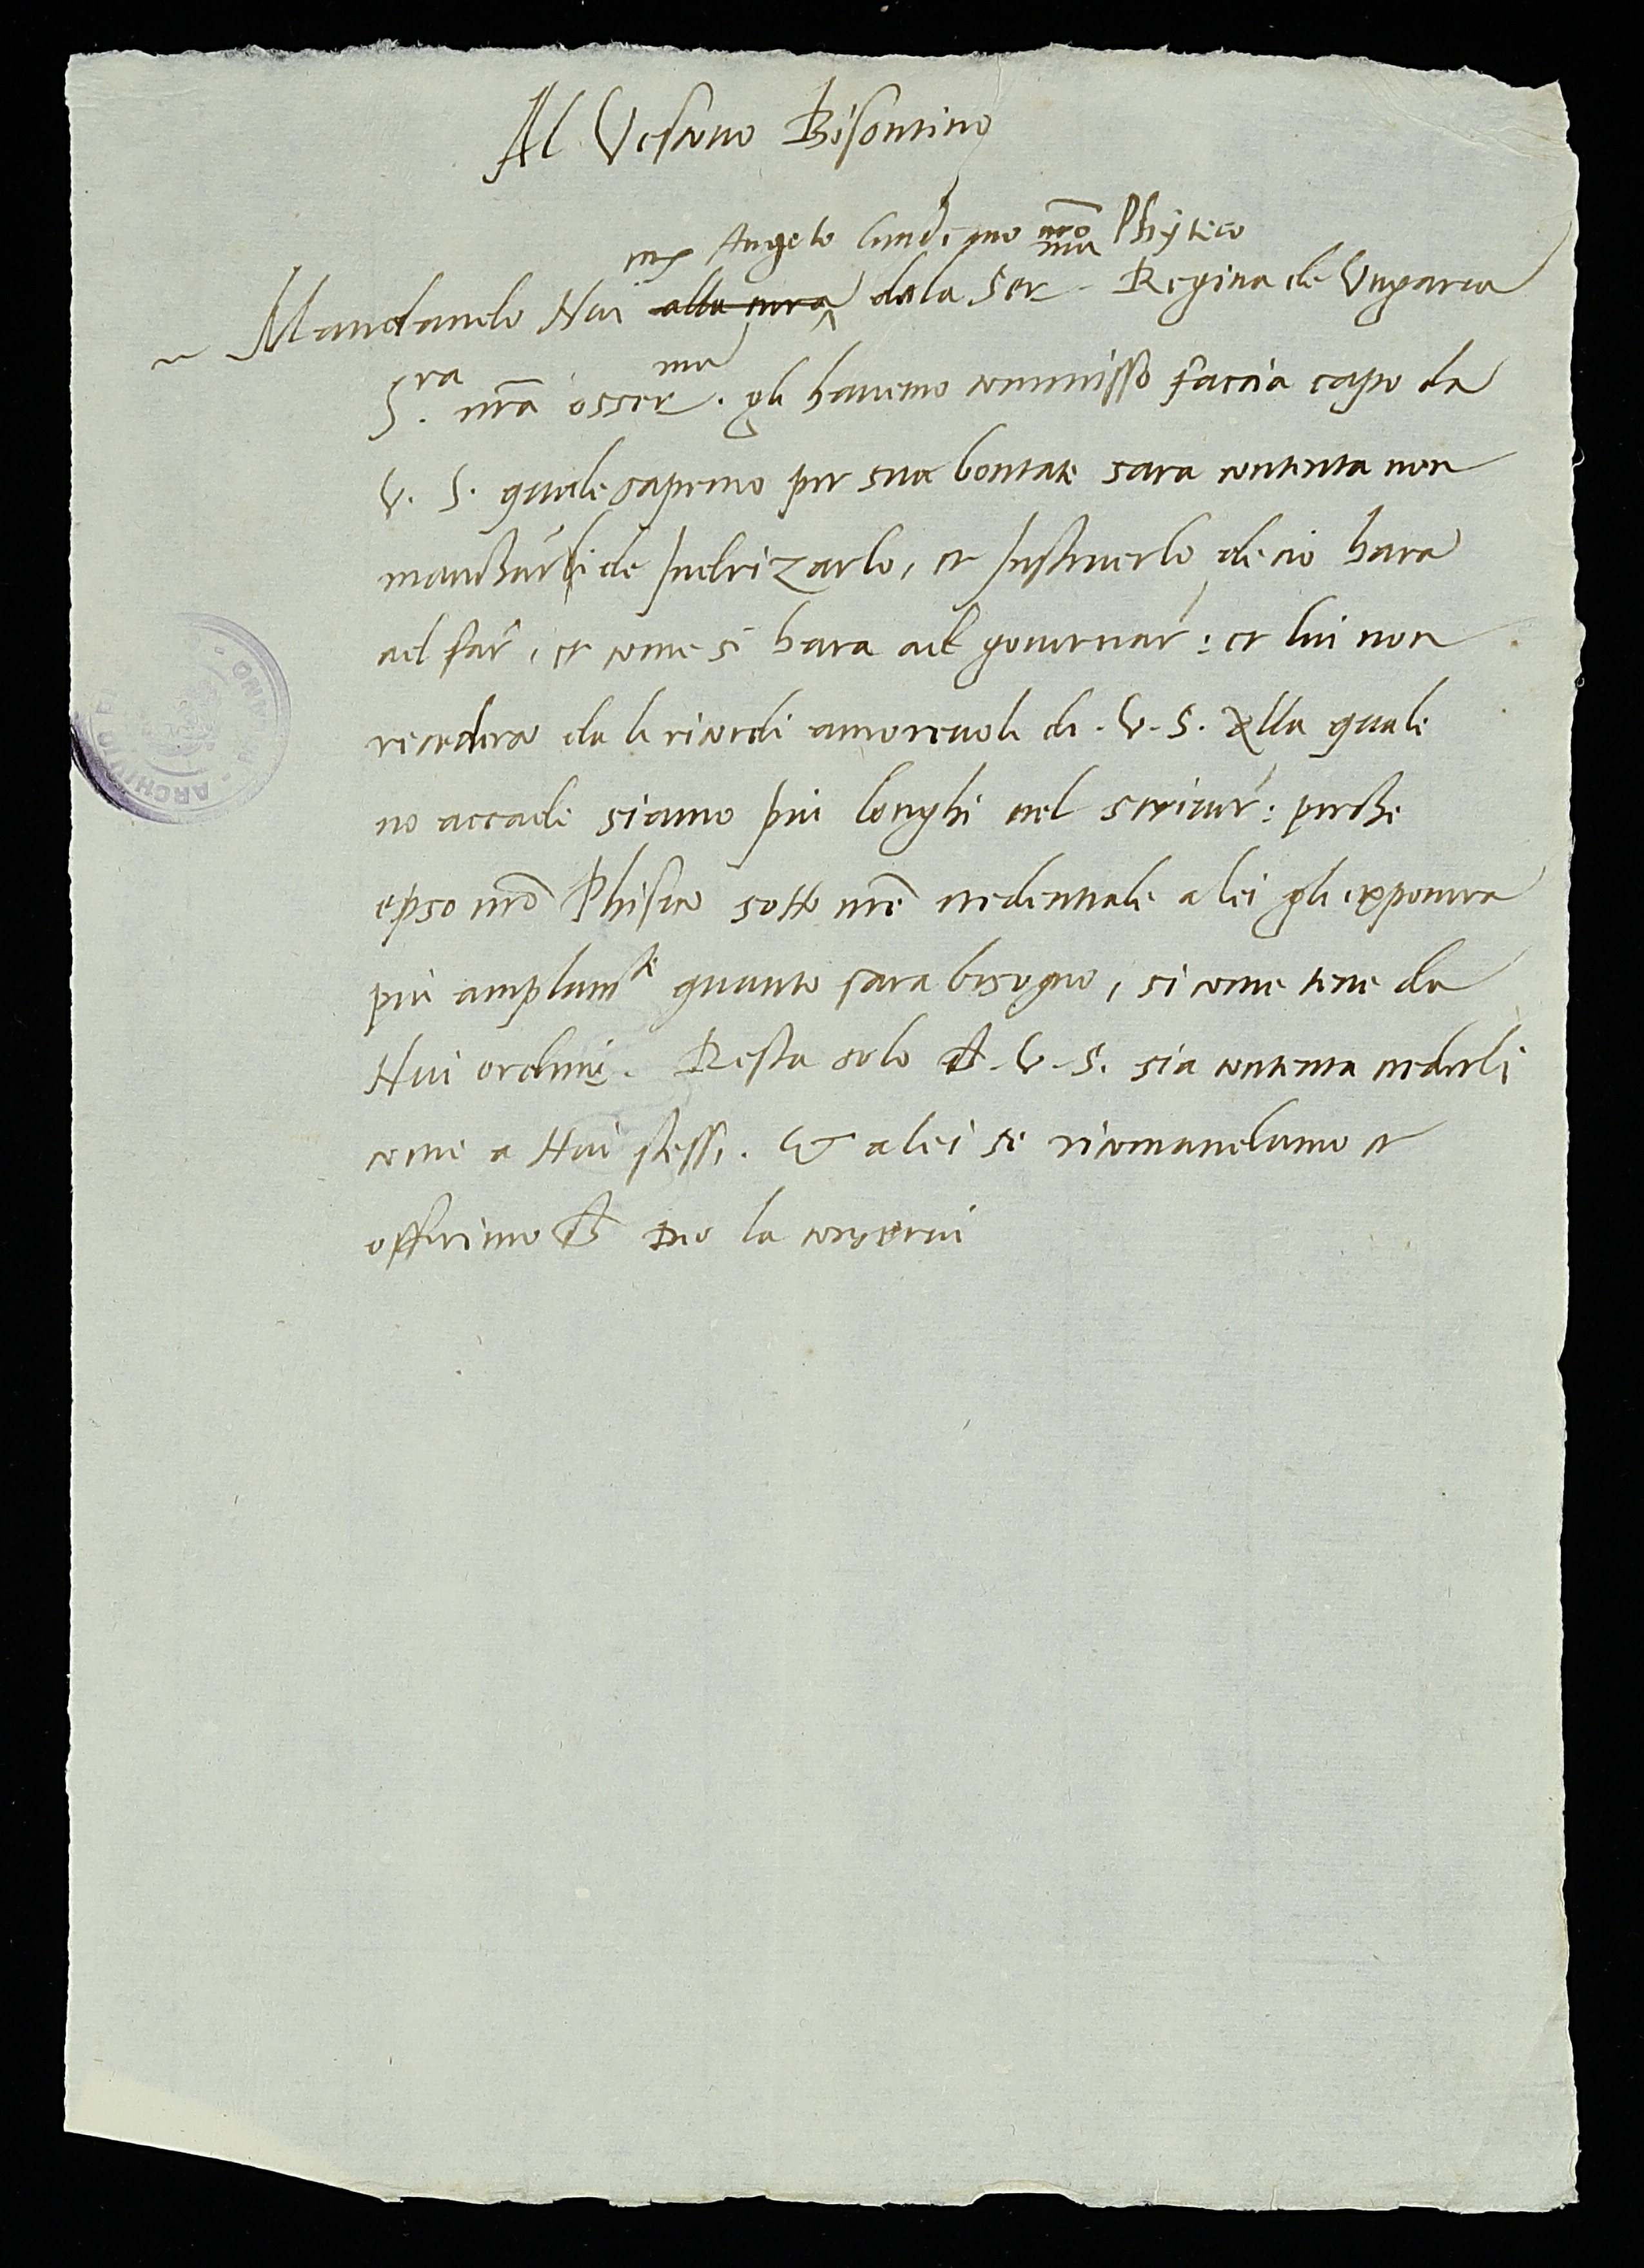 Al Vescovo Bisontino
mr Angelo Candiano nro Phỹsico
Mandando Nui alla nra dala Ser.ma Regina de Ungaria
S.ra nr̃a osser.ma gli havemo commisso faccia capo da
V. S. quale sapemo per sua bontate sara contenta non
manchar̃li de Indrizarlo, et Instruerlo de cio hara
ad far̃, et come si hara ad governar̃: et lui non
recedera da li ricordi amorevoli di V. S. Alla quale
no accade siamo piu longhi nel scriver̃: perche
epso nrõ Phisico sotto nrẽ credentiale a lei gli exponera
piu amplamte quanto sara bisogno, si come tene da
Nui ordine. Resta solo ch V. S. sia contenta crederli
come a Nui stessi. Et a lei se ricomandamo et
offerimo ch Dio la conservi
ARCHIVIO